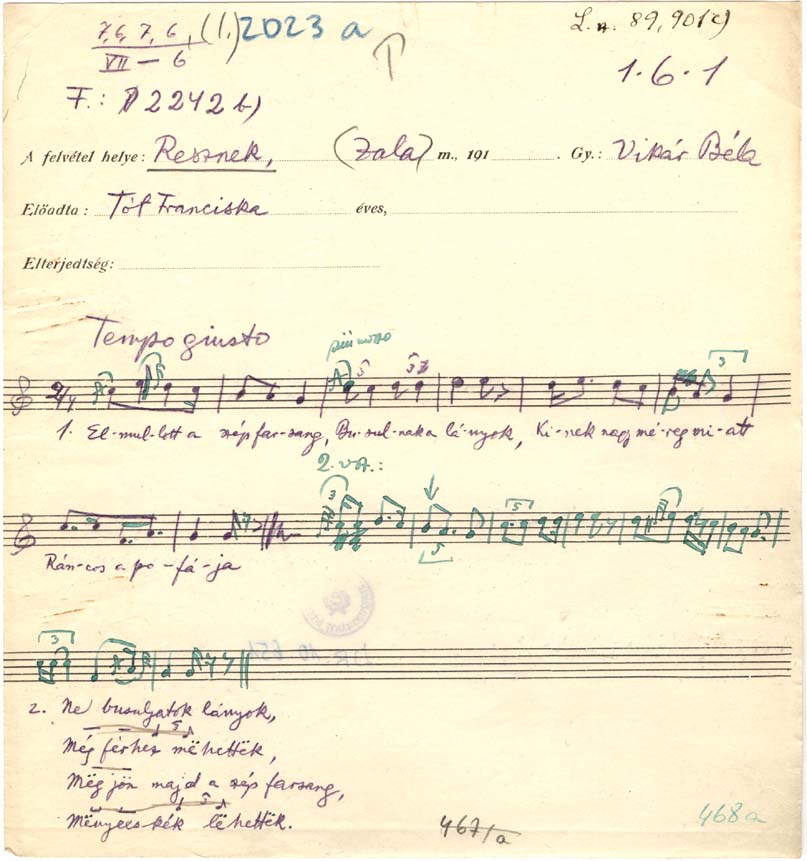 7, 6, 7, 6, (1.) 2023 a L. n. 89, 90 (c)
VII — 6
1 · 6 · 1
F.: 2242 b)
A felvétel helye: Resznek, (Zala) m., 191 . Gy.: Vikár Béla
Előadta: Tót Franciska éves,
Elterjedtség:
Tempo giusto più mosso
5 5 3
2/4
1. El-mul-lott a szép far-sang, Bu-sul-nak a lá-nyok, Ki-nek nagy mé-reg mi-att
2. vsz.:
3 5
5
Rán-cos a po-fá-ja
3
2. Ne busuljatok lányok,
5
Még férhez mëhettëk,
Mëg jön majd a szép farsang,
5
Mënyecskék lëhettëk.
467/a 468a